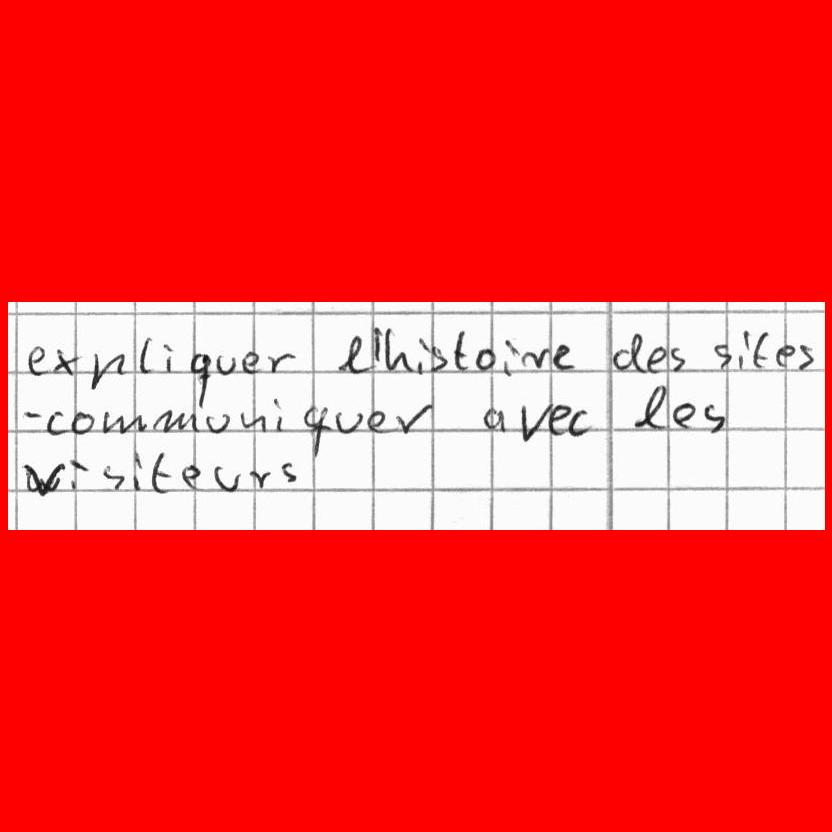 expliquer l'histoire des sites
-communiquer avec les
visiteurs